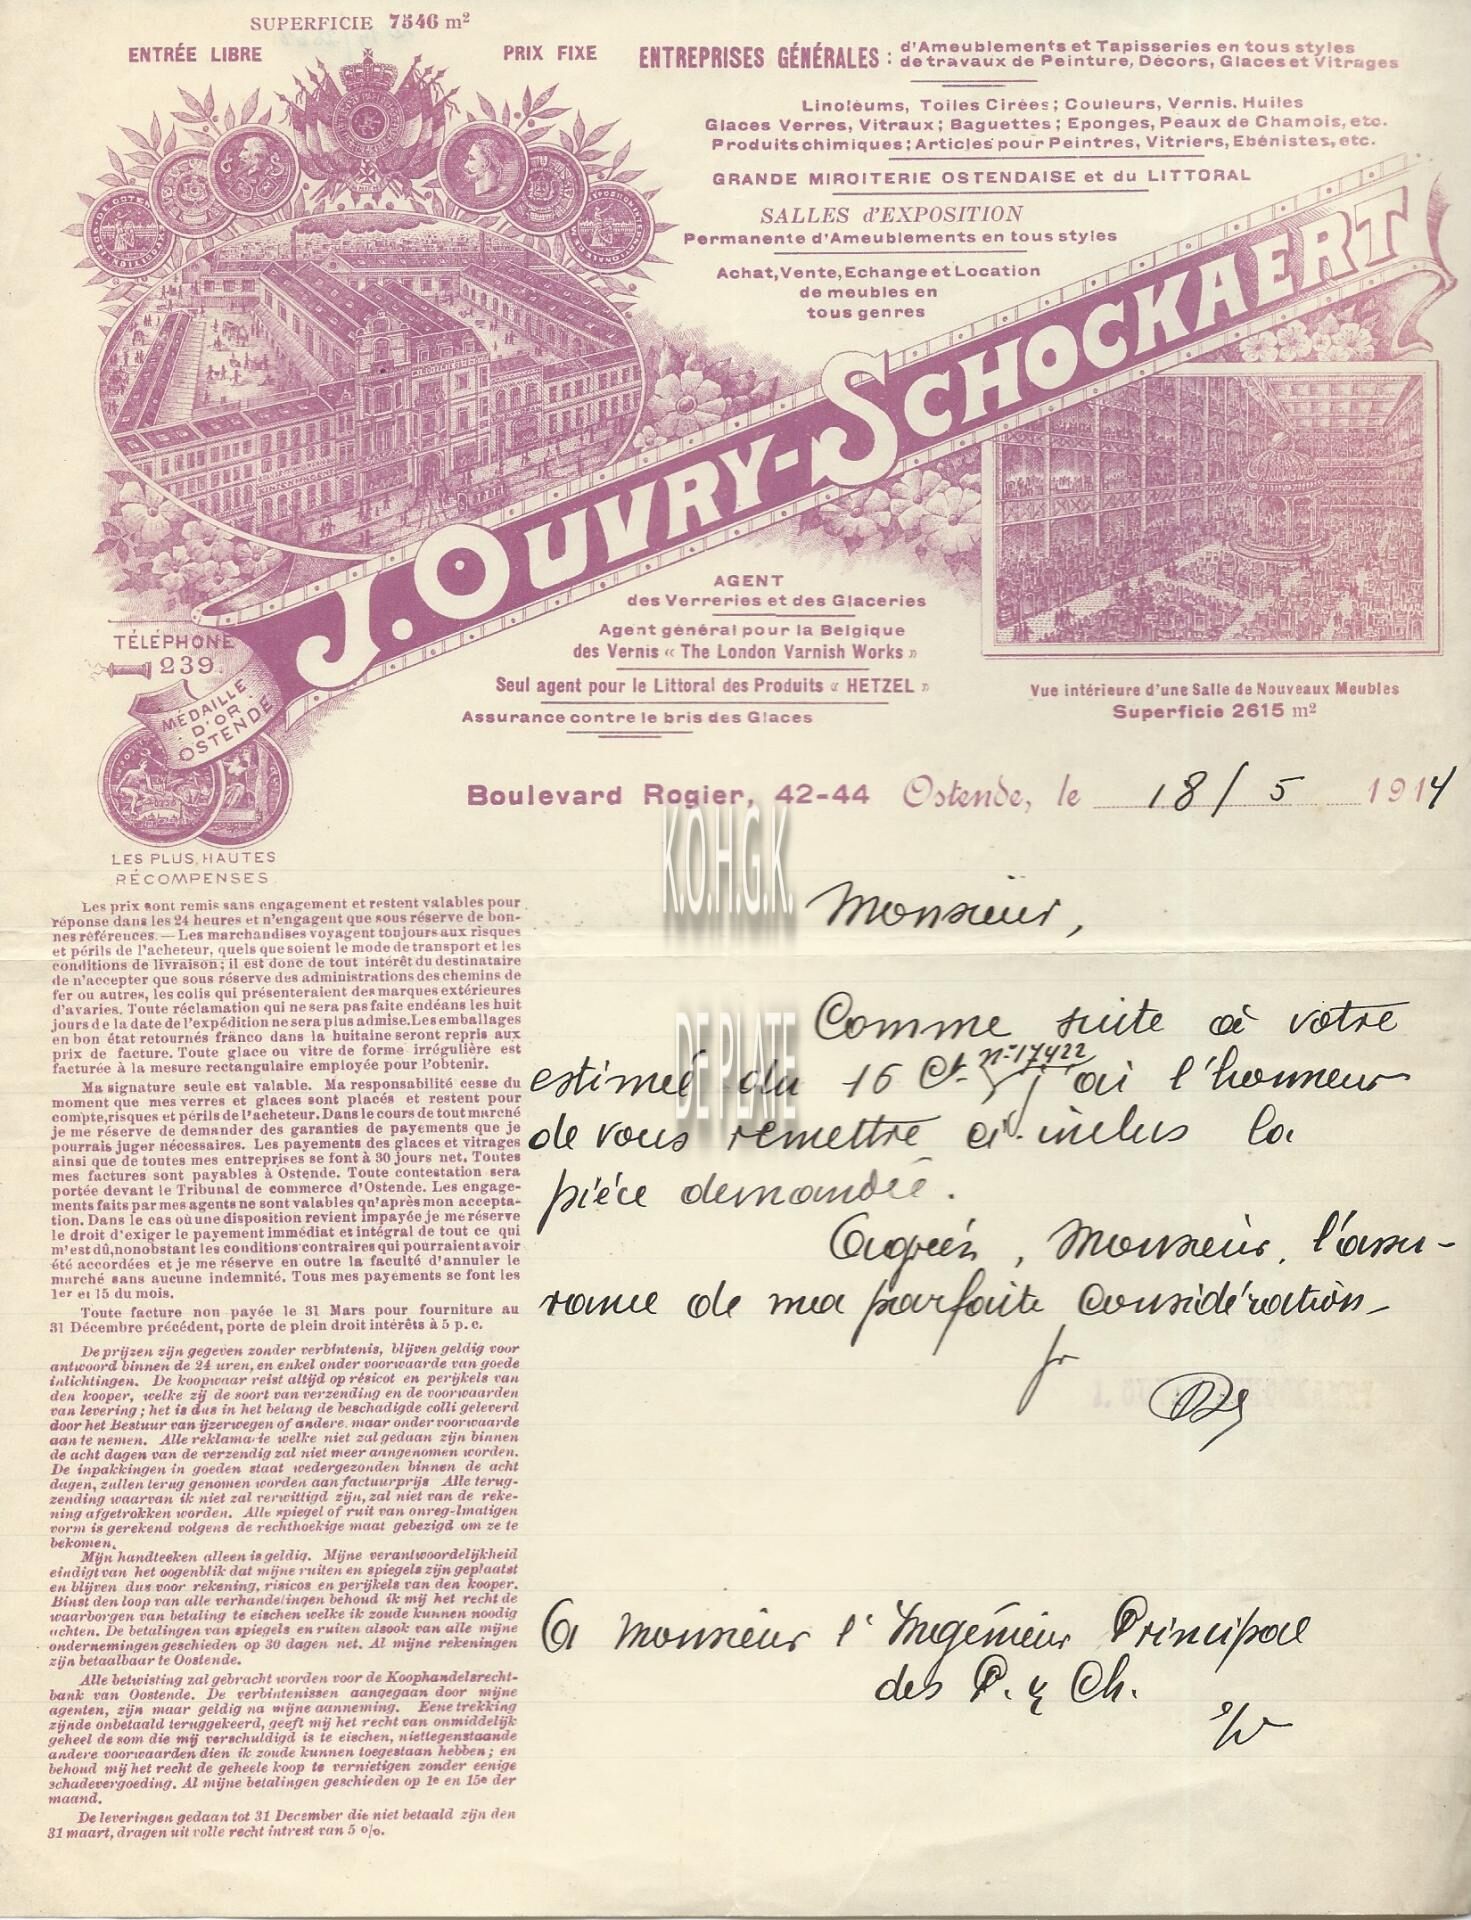 SUPERFICIE 7546 m²
ENTRÉE LIBRE
PRIX FIXE
ENTREPRISES GÉNÉRALES : d'Ameublements et Tapisseries en tous styles
de travaux de Peinture, Décors, Glaces et Vitrages
Linoléums, Toiles Cirées; Couleurs, Vernis. Huiles
Glaces Verres, Vitraux; Baguettes; Eponges, Peaux de Chamois, etc.
Produits chimiques; Articles pour Peintres, Vitriers, Ebénistes, etc.
GRANDE MIROITERIE OSTENDAISE et du LITTORAL
SALLES d'EXPOSITION
Permanente d'Ameublements en tous styles
Achat, Vente, Echange et Location
de meubles en
tous genres
J. OUVRY-SCHOCKAERT
AGENT
des Verreries et des Glaceries
Agent général pour la Belgique
des Vernis « The London Varnish Works »
Seul agent pour le Littoral des Produits « HETZEL »
Assurance contre le bris des Glaces
TÉLÉPHONE
239.
MÉDAILLE
D'OR
OSTENDE
LES PLUS HAUTES
RÉCOMPENSES
Vue intérieure d'une Salle de Nouveaux Meubles
Superficie 2615 m²
Boulevard Rogier, 42-44 Ostende, le 18/5 1914
K.O.H.G.K.
DE PLATE
Les prix sont remis sans engagement et restent valables pour
réponse dans les 24 heures et n'engagent que sous réserve de bon-
nes références. — Les marchandises voyagent toujours aux risques
et périls de l'acheteur, quels que soient le mode de transport et les
conditions de livraison; il est donc de tout intérêt du destinataire
de n'accepter que sous réserve des administrations des chemins de
fer ou autres, les colis qui présenteraient des marques extérieures
d'avaries. Toute réclamation qui ne sera pas faite endéans les huit
jours de la date de l'expédition ne sera plus admise. Les emballages
en bon état retournés franco dans la huitaine seront repris aux
prix de facture. Toute glace ou vitre de forme irrégulière est
facturée à la mesure rectangulaire employée pour l'obtenir.
Ma signature seule est valable. Ma responsabilité cesse du
moment que mes verres et glaces sont placés et restent pour
compte, risques et périls de l'acheteur. Dans le cours de tout marché
je me réserve de demander des garanties de payements que je
pourrais juger nécessaires. Les payements des glaces et vitrages
ainsi que de toutes mes entreprises se font à 30 jours net. Toutes
mes factures sont payables à Ostende. Toute contestation sera
portée devant le Tribunal de commerce d'Ostende. Les engage-
ments faits par mes agents ne sont valables qu'après mon accepta-
tion. Dans le cas où une disposition revient impayée je me réserve
le droit d'exiger le payement immédiat et intégral de tout ce qui
m'est dû, nonobstant les conditions contraires qui pourraient avoir
été accordées et je me réserve en outre la faculté d'annuler le
marché sans aucune indemnité. Tous mes payements se font les
1er et 15 du mois.
Toute facture non payée le 31 Mars pour fourniture au
31 Décembre précédent, porte de plein droit intérêts à 5 p. c.
De prijzen zijn gegeven zonder verbintenis, blijven geldig voor
antwoord binnen de 24 uren, en enkel onder voorwaarde van goede
inlichtingen. De koopwaar reist altijd op résicot en perijkels van
den kooper, welke zij de soort van verzending en de voorwaarden
van levering; het is dus in het belang de beschadigde colli geleverd
door het Bestuur van ijzerwegen of andere. maar onder voorwaarde
aan te nemen. Alle reklamatie welke niet zal gedaan zijn binnen
de acht dagen van de verzendig zal niet meer aangenomen worden.
De inpakkingen in goeden staat wedergezonden binnen de acht
dagen, zullen terug genomen worden aan factuurprijs Alle terug-
zending waarvan ik niet zal verwittigd zijn, zal niet van de reke-
ning afgetrokken worden. Alle spiegel of ruit van onreg-lmatigen
vorm is gerekend volgens de rechthoekige maat gebezigd om ze te
bekomen.
Mijn handteeken alleen is geldig. Mijne verantwoordelijkheid
eindigt van het oogenblik dat mijne ruiten en spiegels zijn geplaatst
en blijven dus voor rekening, risicos en perijkels van den kooper.
Binst den loop van alle verhandelingen behoud ik mij het recht de
waarborgen van betaling te eischen welke ik zoude kunnen noodig
achten. De betalingen van spiegels en ruiten alsook van alle mijne
ondernemingen geschieden op 30 dagen net. Al mijne rekeningen
zijn betaalbaar te Oostende.
Alle betwisting zal gebracht worden voor de Koophandelsrecht-
bank van Oostende. De verbintenissen aangegaan door mijne
agenten, zijn maar geldig na mijne aanneming. Eene trekking
zijnde onbetaald teruggekeerd, geeft mij het recht van onmiddelijk
geheel de som die mij verschuldigd is te eischen, niettegenstaande
andere voorwaarden dien ik zoude kunnen toegestaan hebben; en
behoud mij het recht de geheele koop te vernietigen zonder eenige
schadevergoeding. Al mijne betalingen geschieden op 1e en 15e der
maand.
De leveringen gedaan tot 31 December die niet betaald zijn den
31 maart, dragen uit volle recht intrest van 5 o/o.
Monsieur,
Comme suite à votre
estimée du 16 Ct. n° 17422 j'ai l'honneur
de vous remettre ci-inclus la
pièce demandée.
Agréez, Monsieur, l'assu-
rance de ma parfaite considération
pr
J. OUVRY-SCHOCKAERT
A Monsieur l'Ingénieur Principal
des P. & Ch.
E/V